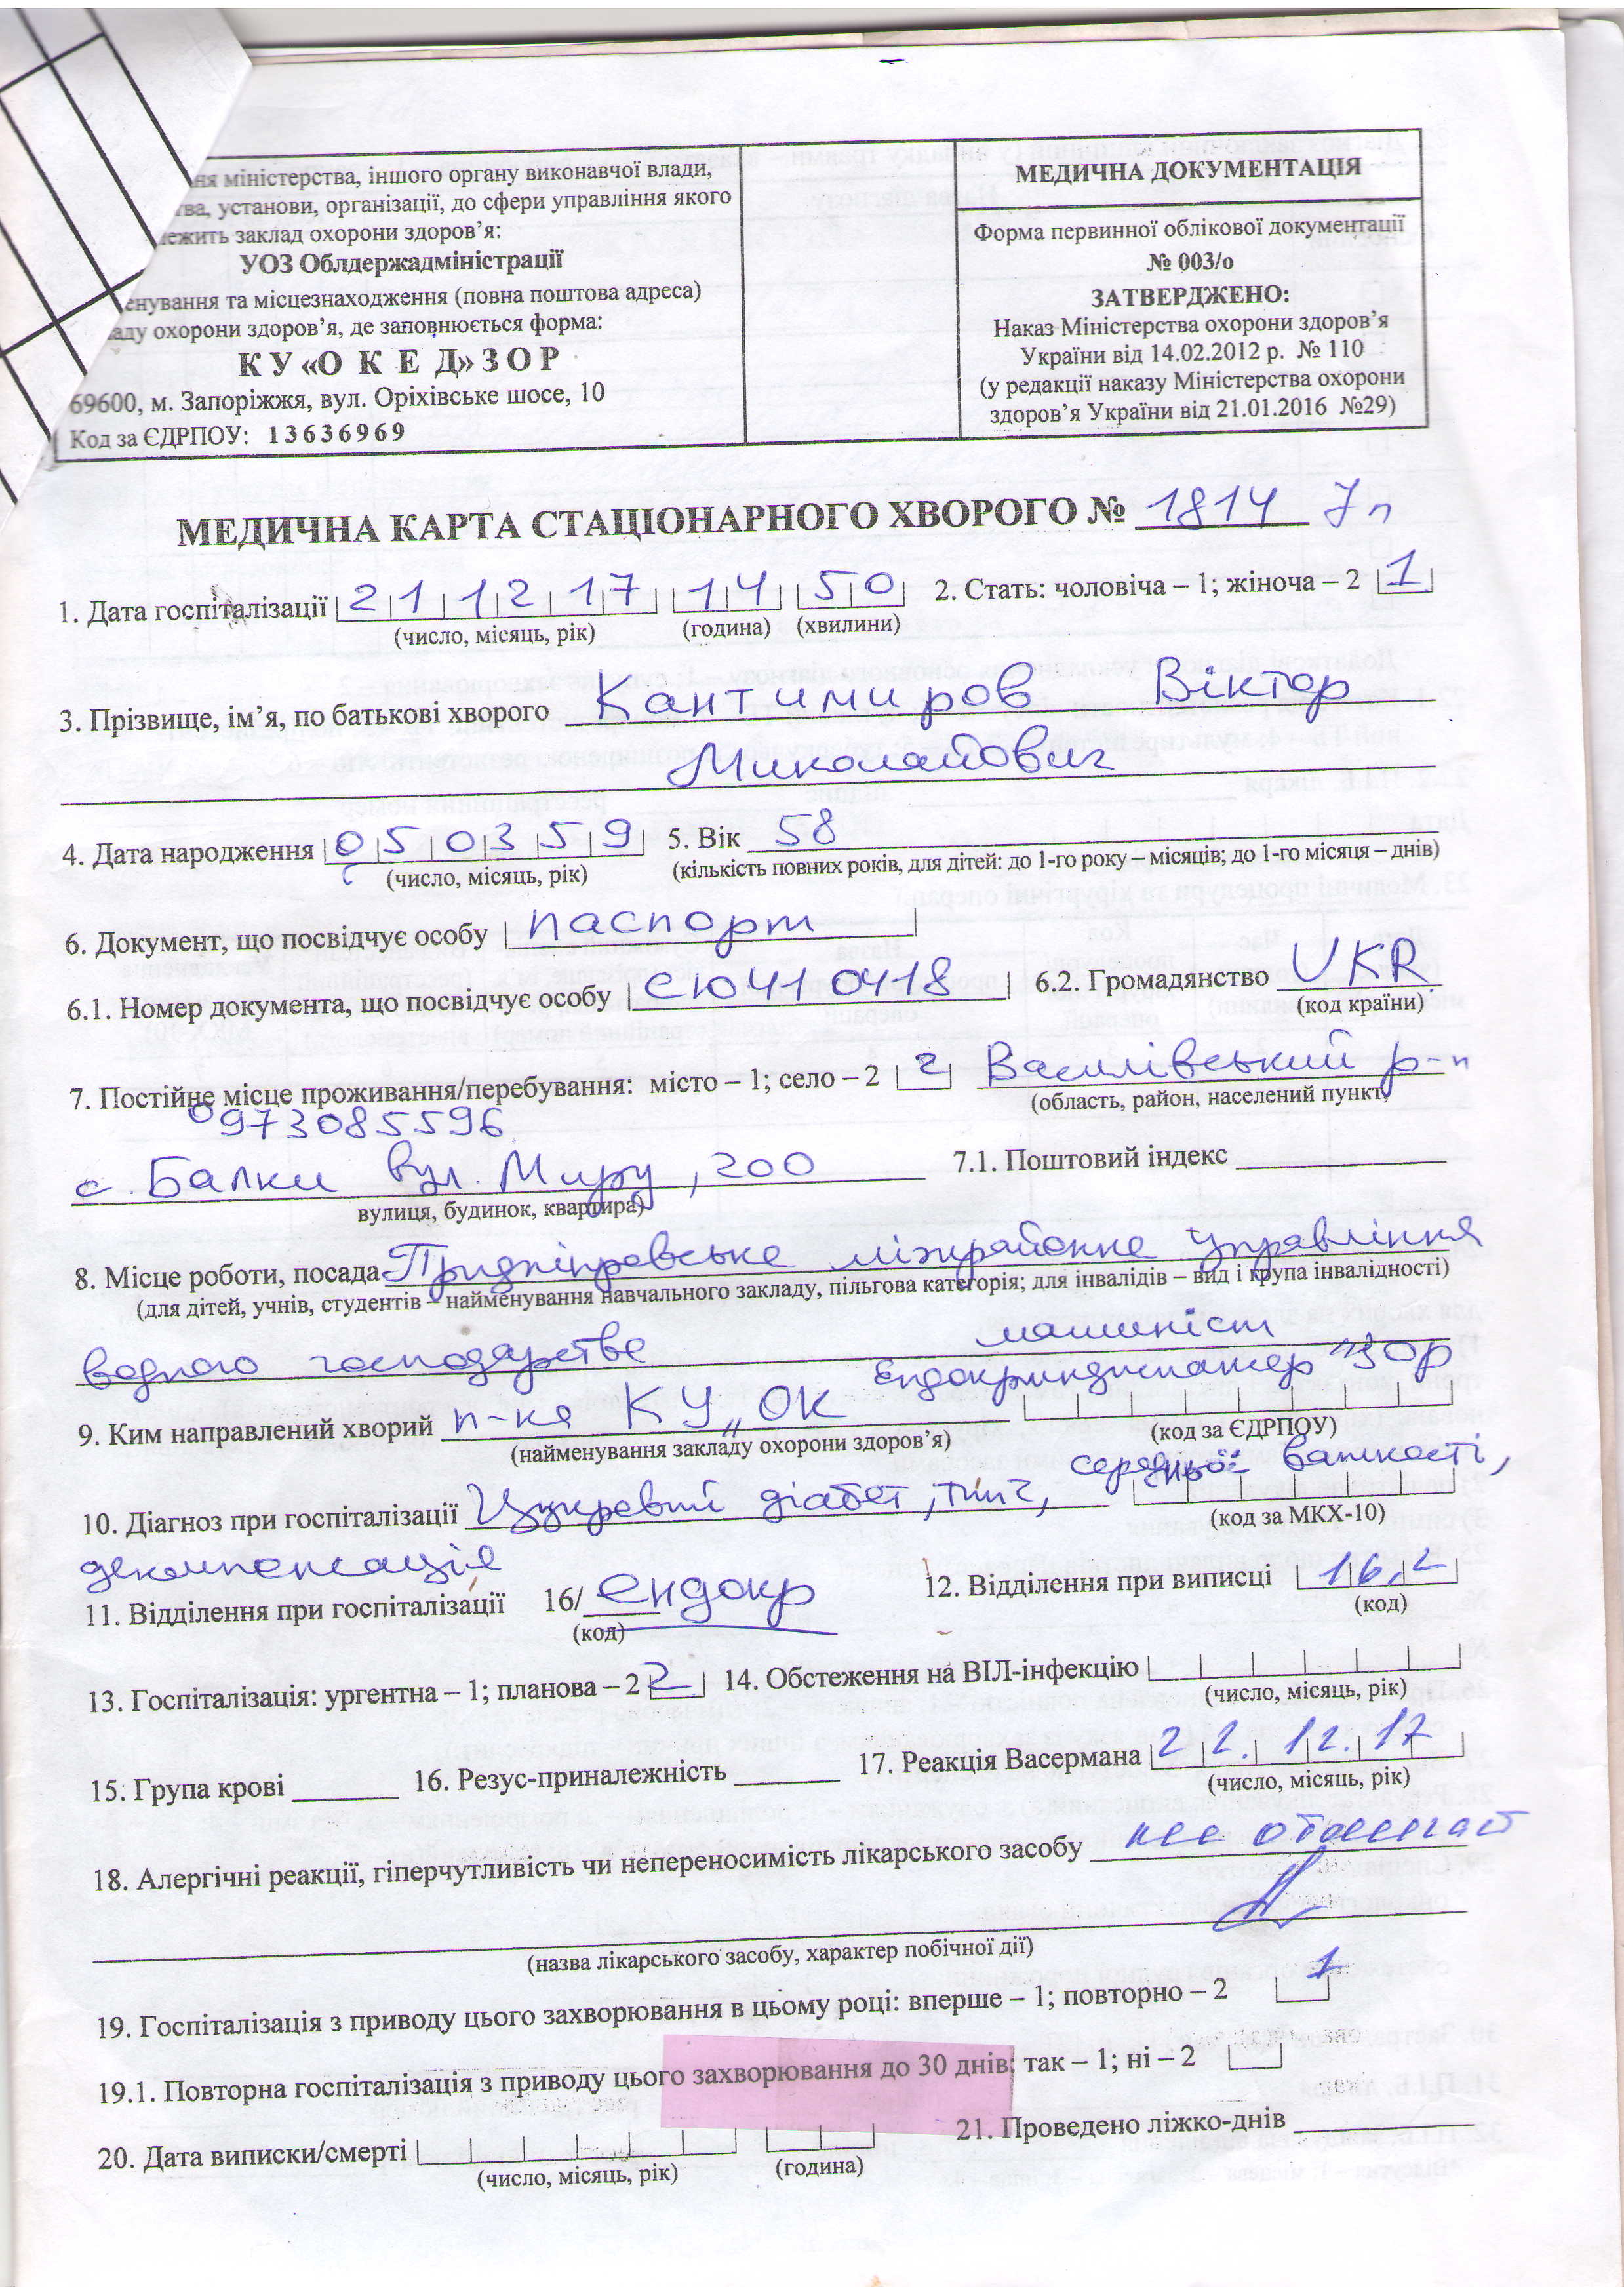 ня міністерства, іншого органу виконавчої влади,
тва, установи, організації, до сфери управління якого
лежить заклад охорони здоров’я:
УОЗ Облдержадміністрації
енування та місцезнаходження (повна поштова адреса)
ладу охорони здоров’я, де заповнюється форма:
К У «О К Е Д» З О Р
69600, м. Запоріжжя, вул. Оріхівське шосе, 10
Код за ЄДРПОУ: 1 3 6 3 6 9 6 9
МЕДИЧНА ДОКУМЕНТАЦІЯ
Форма первинної облікової документації
№ 003/о
ЗАТВЕРДЖЕНО:
Наказ Міністерства охорони здоров’я
України від 14.02.2012 р. № 110
(у редакції наказу Міністерства охорони
здоров’я України від 21.01.2016 №29)
МЕДИЧНА КАРТА СТАЦІОНАРНОГО ХВОРОГО № 1814 7п
1. Дата госпіталізації 21 12 17 14 50 2. Стать: чоловіча – 1; жіноча – 2 1
(число, місяць, рік) (година) (хвилини)
3. Прізвище, ім’я, по батькові хворого Кантимиров Віктор
Миколайович
4. Дата народження 050359 5. Вік 58
(число, місяць, рік) (кількість повних років, для дітей: до 1-го року – місяців; до 1-го місяця – днів)
6. Документ, що посвідчує особу паспорт
6.1. Номер документа, що посвідчує особу СЮ410418 6.2. Громадянство UKR
(код країни)
7. Постійне місце проживання/перебування: місто – 1; село – 2 2 Василівський р-н
(область, район, населений пункт)
0973085596.
с. Балки вул. Миру, 200 7.1. Поштовий індекс
вулиця, будинок, квартира)
8. Місце роботи, посада Придніпровське міжрайонне управління
(для дітей, учнів, студентів – найменування навчального закладу, пільгова категорія; для інвалідів – вид і група інвалідності)
водного господарства машиніст
Ендокриндиспансер" ЗОР
9. Ким направлений хворий п-ка КУ „ОК
(найменування закладу охорони здоров’я) (код за ЄДРПОУ)
10. Діагноз при госпіталізації Цукровий діабет, тип 2, середньої важкості,
(код за МКХ-10)
декомпенсація
11. Відділення при госпіталізації 16/ ендокр 12. Відділення при виписці 16,2
(код) (код)
13. Госпіталізація: ургентна – 1; планова – 2 2 14. Обстеження на ВІЛ-інфекцію
(число, місяць, рік)
15. Група крові 16. Резус-приналежність 17. Реакція Васермана 22. 12. 17
(число, місяць, рік)
18. Алергічні реакції, гіперчутливість чи непереносимість лікарського засобу не отмечает
(назва лікарського засобу, характер побічної дії)
19. Госпіталізація з приводу цього захворювання в цьому році: вперше – 1; повторно – 2 1
19.1. Повторна госпіталізація з приводу цього захворювання до 30 днів: так – 1; ні – 2
20. Дата виписки/смерті 21. Проведено ліжко-днів
(число, місяць, рік) (година)